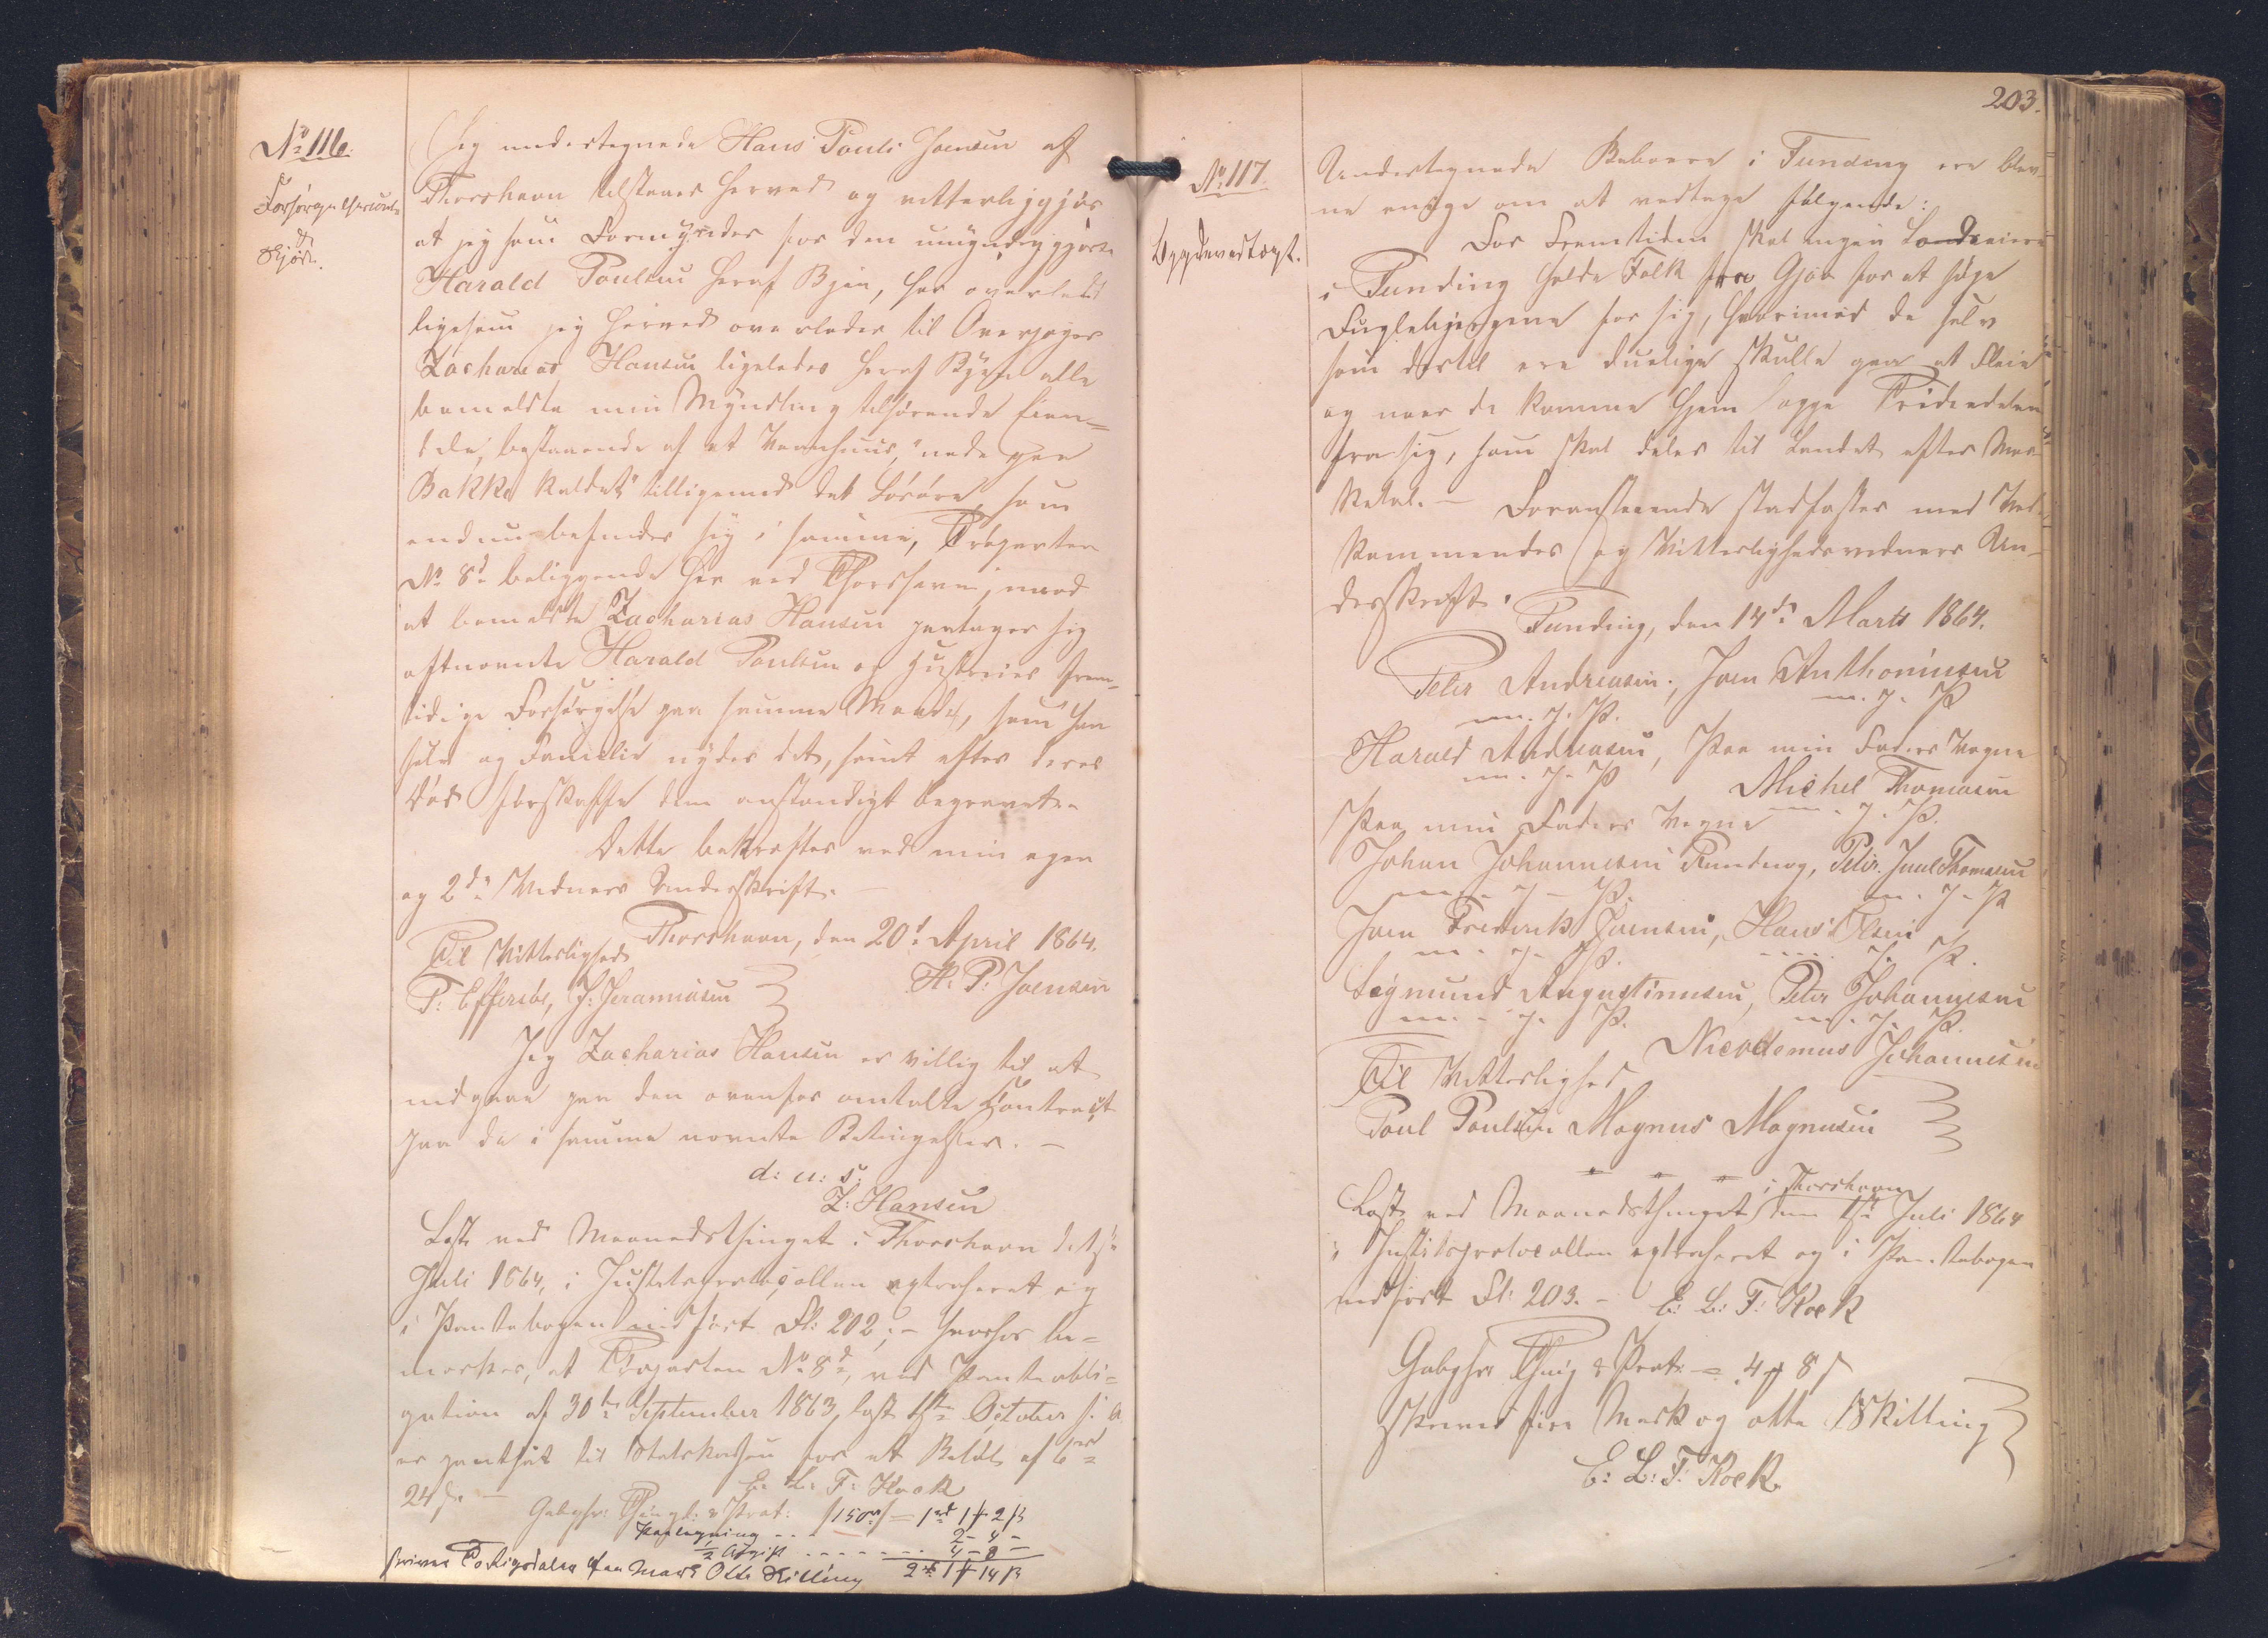 No 116.
Forsørgelsescontr.
&
Skjøde.
Jeg undertegnede Hans Pauli Joensen af
Thorshavn tilstaaer herved og vitterliggjør
at jeg som Formynder for den umyndiggjorte
Harald Poulsen heraf Byen, har overladt
ligesom jeg herved overlader til
Zacharias Hansen ligeledes heraf Byen alle
bemeldte min Myndling tilhørende Eien-
dele, bestaaende af et Vaanhuus, "nede paa
Bakke kaldet" tilligemed det Løsøre, som
endnu befinder sig i samme, Trøparten
No 8d beliggende her ved Thorshavn, mod
at bemeldte Zacharias Hansen paatager sig
oftnævnte Harald Poulsen og Hustrues frem-
tidige Forsørgelse paa samme Maade, som han
selv og Familie nyder det, samt efter deres
Død forskaffe dem anstændigt begravet.
Dette bekræftes ved min egen
og 2de Vidners Underskrift.
Thorshavn, den 20d April 1864.
Til Vitterlighed
P: Effersøe, J: Jeremiasen H. P: Joensen
Jeg Zacharias Hansen er villig til at
indgaae paa den ovenfor omtalte Contract
paa de i samme nævnte Betingelser. –
d: u: s:
Z: Hansen
Læst ved Maanedsthinget i Thorshavn d. 1ste
Juli 1864, i Justitsprotocollen extraheret og
i Pantebogen indført Fl: 202; – hvorhos be-
mærkes, at Trøparten No 8d, ved Panteobli-
gation af 30te September 1863, læst 1ste October s. A.
er pantsat til Statskassen for et Beløb af 6rd
24 s. – E. L. F. Kock
Gebyhr: Thingl: & Prot: /150rd/ = 1rd 1 # 2 ß
Paategning - - 2 - 4 -
1/2 Afgift - - - - - - 4 - 8 -
skriver To Rigsdaler een Mark Otte Skilling 2rd 1 # 14 ß
203.
No 117.
Bygdevedtægt.
Undertegnede Beboere i Funding ere blev-
ne enige om at vedtage følgende:
For Fremtiden skal ingen Landseiere
i Funding holde Folk fra Gjov for at søge
Fuglebjergene for sig, hvorimod de selv
som dertil ere duelige skulle gaa at Fleie
og naar de komme hjem lægge Trediedelen
fra sig, som skal deles til Landet efter Mar-
ketal. – Foranstaaende stadfæstes med Ved-
kommendes og Vitterlighedsvidners Un-
derskrift.
Funding, den 14de Marts 1864.
Peter Andreasen, Joen Anthoniusen
m. f. P. m. f. P
Harald Andreasen, Paa min Faders Vegne
m. f. P Michel Thomasen
Paa min Faders Vegne m. f. P.
Johan Johannesen, Peter Juul Thomasen
m. f. P. m. f. P
Joen Frederik Joensen, Hans Olsen
m. f. P. m. f. P.
Sigmund Augustinusen, Peter Johannesen
m. f. P. m. f. P.
Nicodemus Johannesen
Til Vitterlighed
Poul Poulsen Magnus Magnusen
i Thorshavn
Læst ved Maanedsthinget den 1ste Juli 1864
i Justitsprotocollen extraheret og i Pantebogen
indført Fl: 203. – E: L: F: Kock
Gebyhr Thing & Prot: = 4 # 8 s
skriver fire Mark og otte Skilling
E: L: F: Kock.